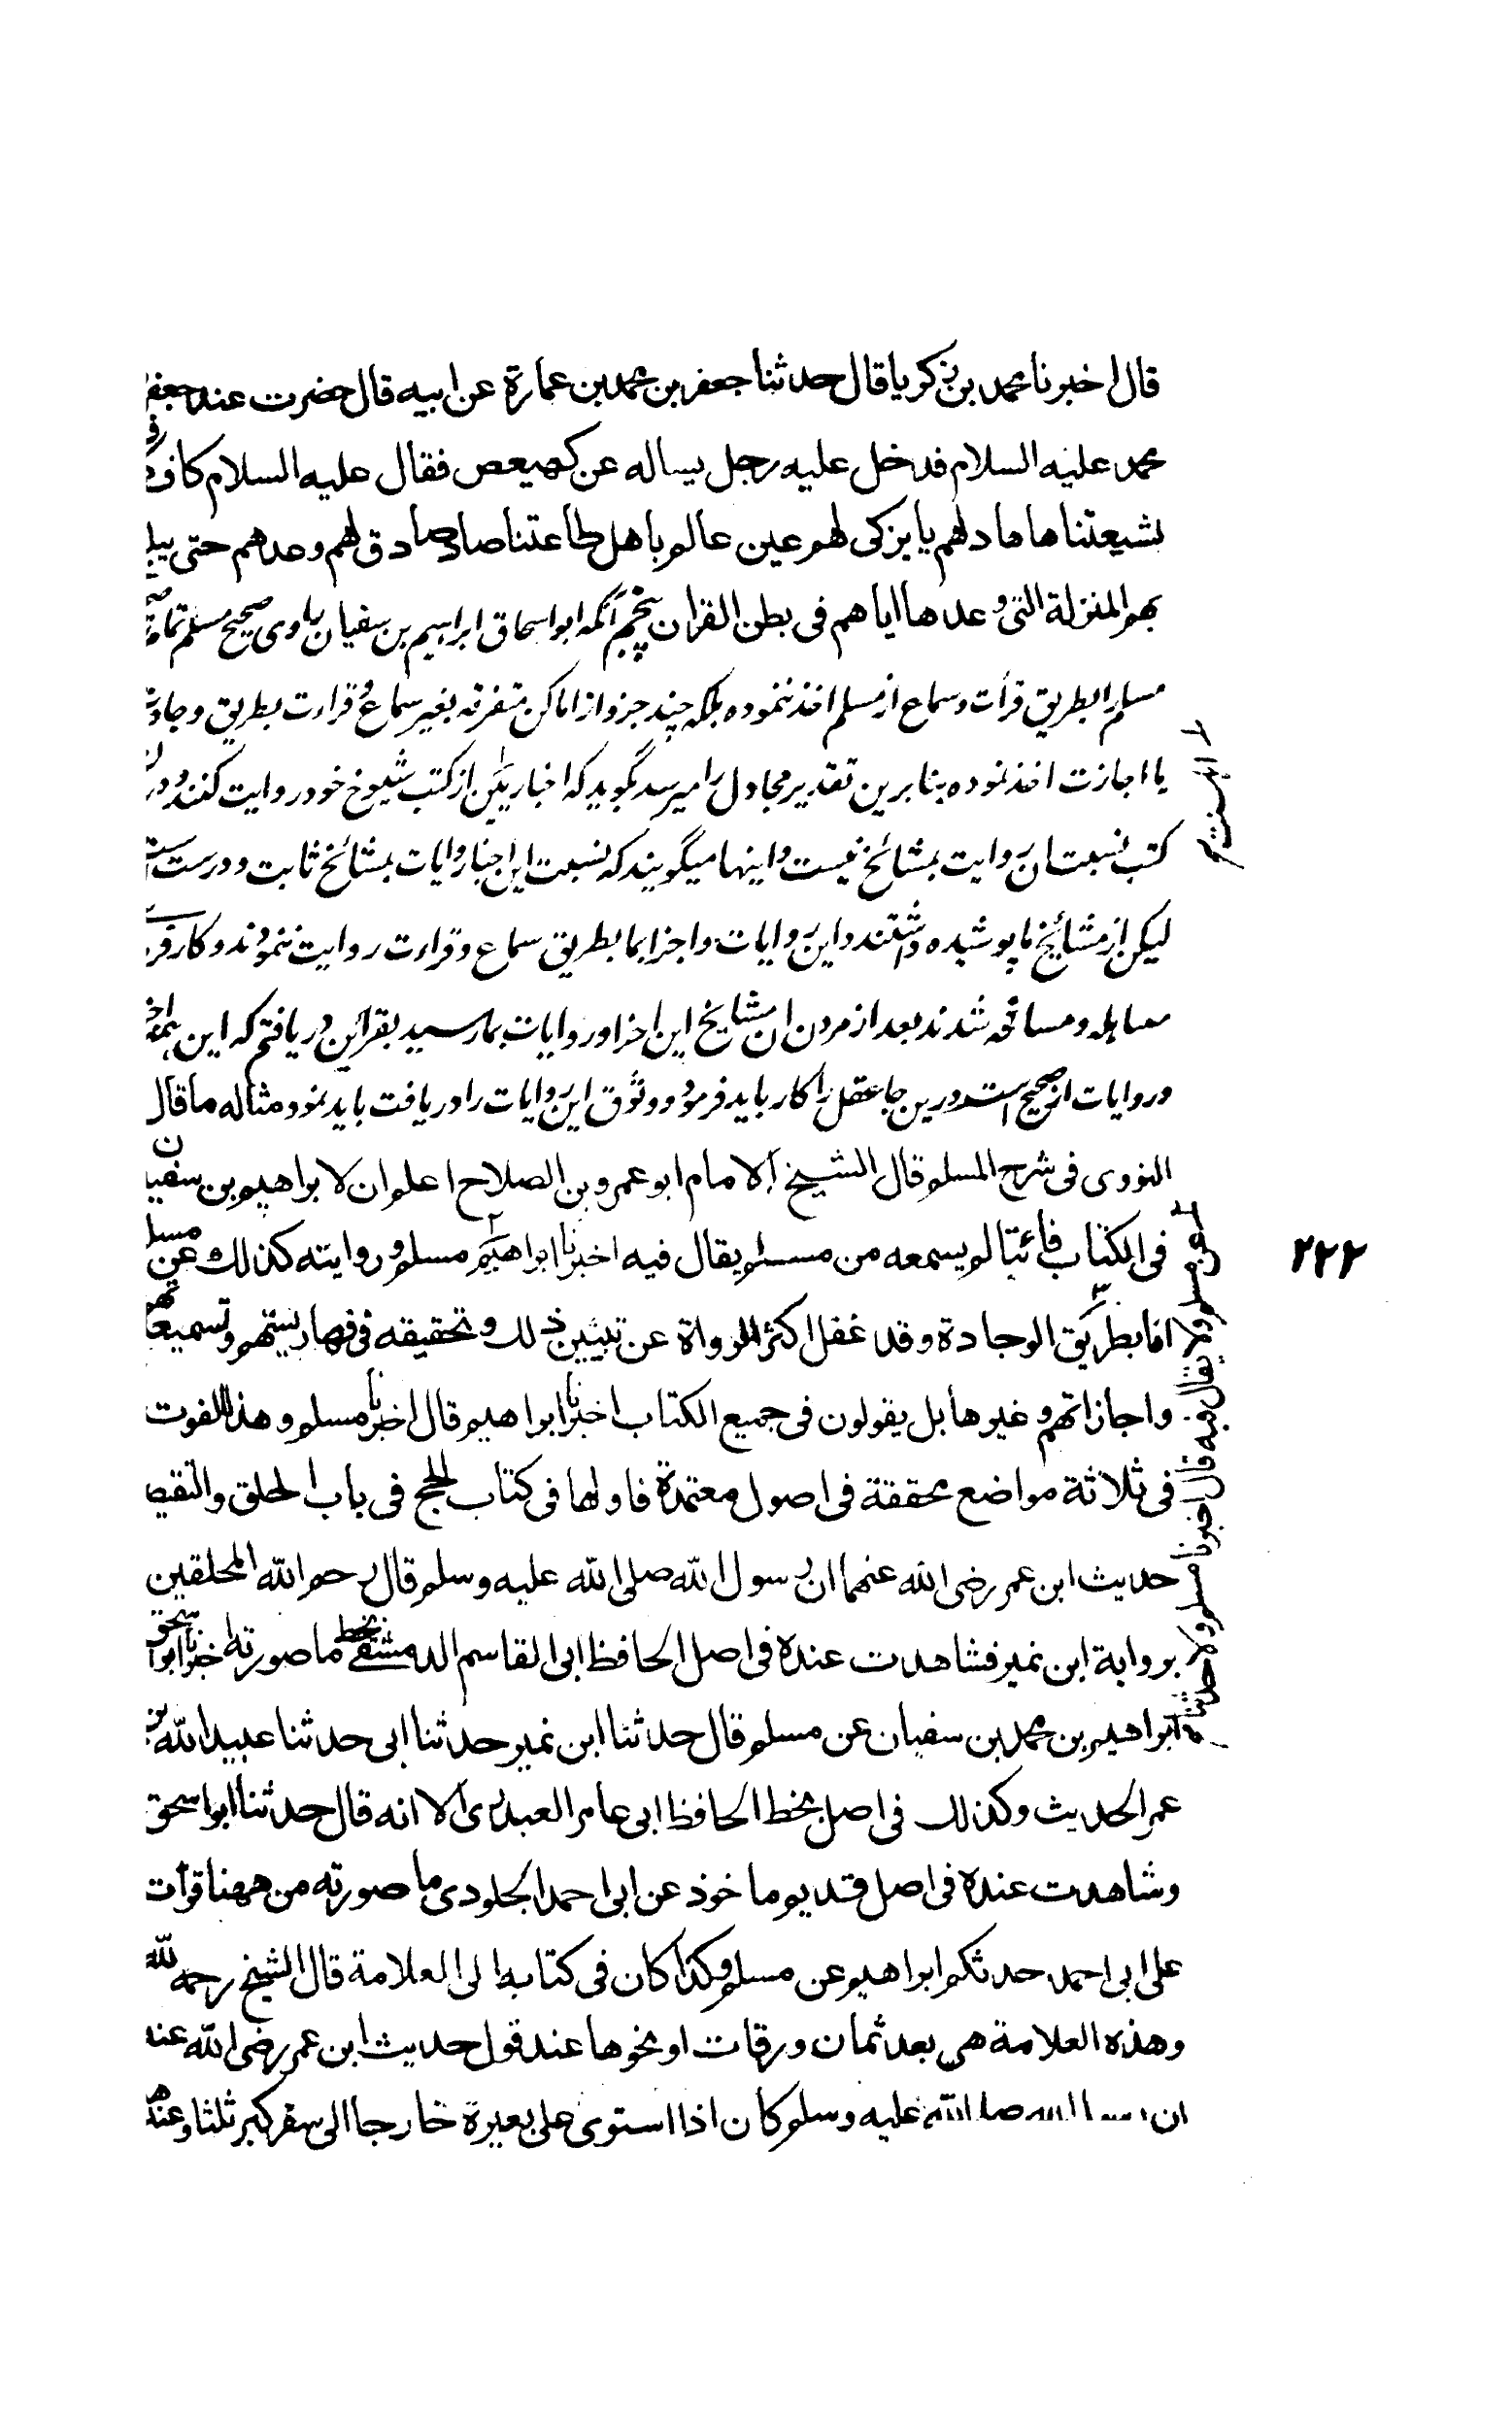 قال اخبرنا محمد بن زكريا قال حدثنا جعفر بن محمد بن عمارة عن ابيه قال حضرت عند جعفر
محمد عليه السلام فدخل عليه رجل يساله عن كهيعص فقال عليه السلام كاف
لشيعتنا ها هاد لهم يا يزكى لهم عين عالم باهل طاعتنا صاد صادق لهم وعدهم حتى يبلغ
بهم المنزلة التى وعدها اياهم فى بطن القران پنجم آنكه ابو اسحاق ابراهيم بن سفيان راوى صحيح مسلم تمام
مسلم را بطريق قرأت و سماع از مسلم اخذ ننموده بلكه چند جزو از اماكن متفرقه بغير سماع و قراءت بطريق وجادت
يا اجازت اخذ نموده بنا برين تقدير مجادل را ميرسد بگويد كه اخباريين از كتب شيوخ خود روايت كنند و در ان
كتب نسبت ان روايت بمشائخ نيست و اينها ميگويند كه نسبت اين اخبار و ايات بمشائخ ثابت و درست است
ليكن از مشائخ ما پوشيده داشتند و اين روايات و اجزا بما بطريق سماع و قراءت روايت ننمودند و كار فرماى
مساهله و مسامحه شدند بعد از مردن ان مشايخ اين اجزا و روايات بما رسيد بقراين دريافتم كه اين همه اجزا
و روايات از صحيح است درين جا عقل را كار بايد فرمود و وثوق اين روايات را دريافت بايد نمود مثاله ما قال
النووى فى شرح المسلم قال الشيخ الامام ابو عمرو بن الصلاح اعلم ان لابراهيم بن سفيان
فى الكتاب فائتا لم يسمعه من مسلم يقال فيه اخبرنا ابراهيم عن مسلم و روايته كذلك عن مسلم
اما بطريق الوجادة وقد غفل اكثر الرواة عن تبيين ذلك وتحقيقه فى فهارستهم وتسميعاتهم
واجازاتهم وغيرها بل يقولون فى جميع الكتاب اخبرنا ابراهيم قال اخبرنا مسلم وهذا الفوت
فى ثلاثة مواضع محققة فى اصول معتمدة فاولها فى كتاب الحج فى باب الحلق والتقصير
حديث ابن عمر رضى الله عنهما ان رسول الله صلى الله عليه وسلم قال رحم الله المحلقين
برواية ابن نمير فشاهدت عنده فى اصل الحافظ ابى القاسم الدمشقى بخطه ما صورته اخبرنا ابو اسحق
ابراهيم بن محمد بن سفيان عن مسلم قال حدثنا ابن نمير حدثنا ابى حدثنا عبيد الله بن
عمر الحديث وكذلك فى اصل بخط الحافظ ابى عامر العبدرى الا انه قال حدثنا ابو اسحق
وشاهدت عنده فى اصل قديم ماخوذ عن ابى احمد الجلودى ما صورته من ههنا قرأت
على ابى احمد حدثكم ابراهيم عن مسلم وكذا كان فى كتابه الى العلامة قال الشيخ رحمه الله
وهذه العلامة هى بعد ثمان ورقات او نحوها عند قول حديث ابن عمر رضى الله عنه
ان رسول الله صلى الله عليه وسلم كان اذا استوى على بعيره خارجا الى سفر كبر ثلثا وعندها
ولا يقال فيه قال اخبرنا مسلم ولا حدثنا
٢٢٢